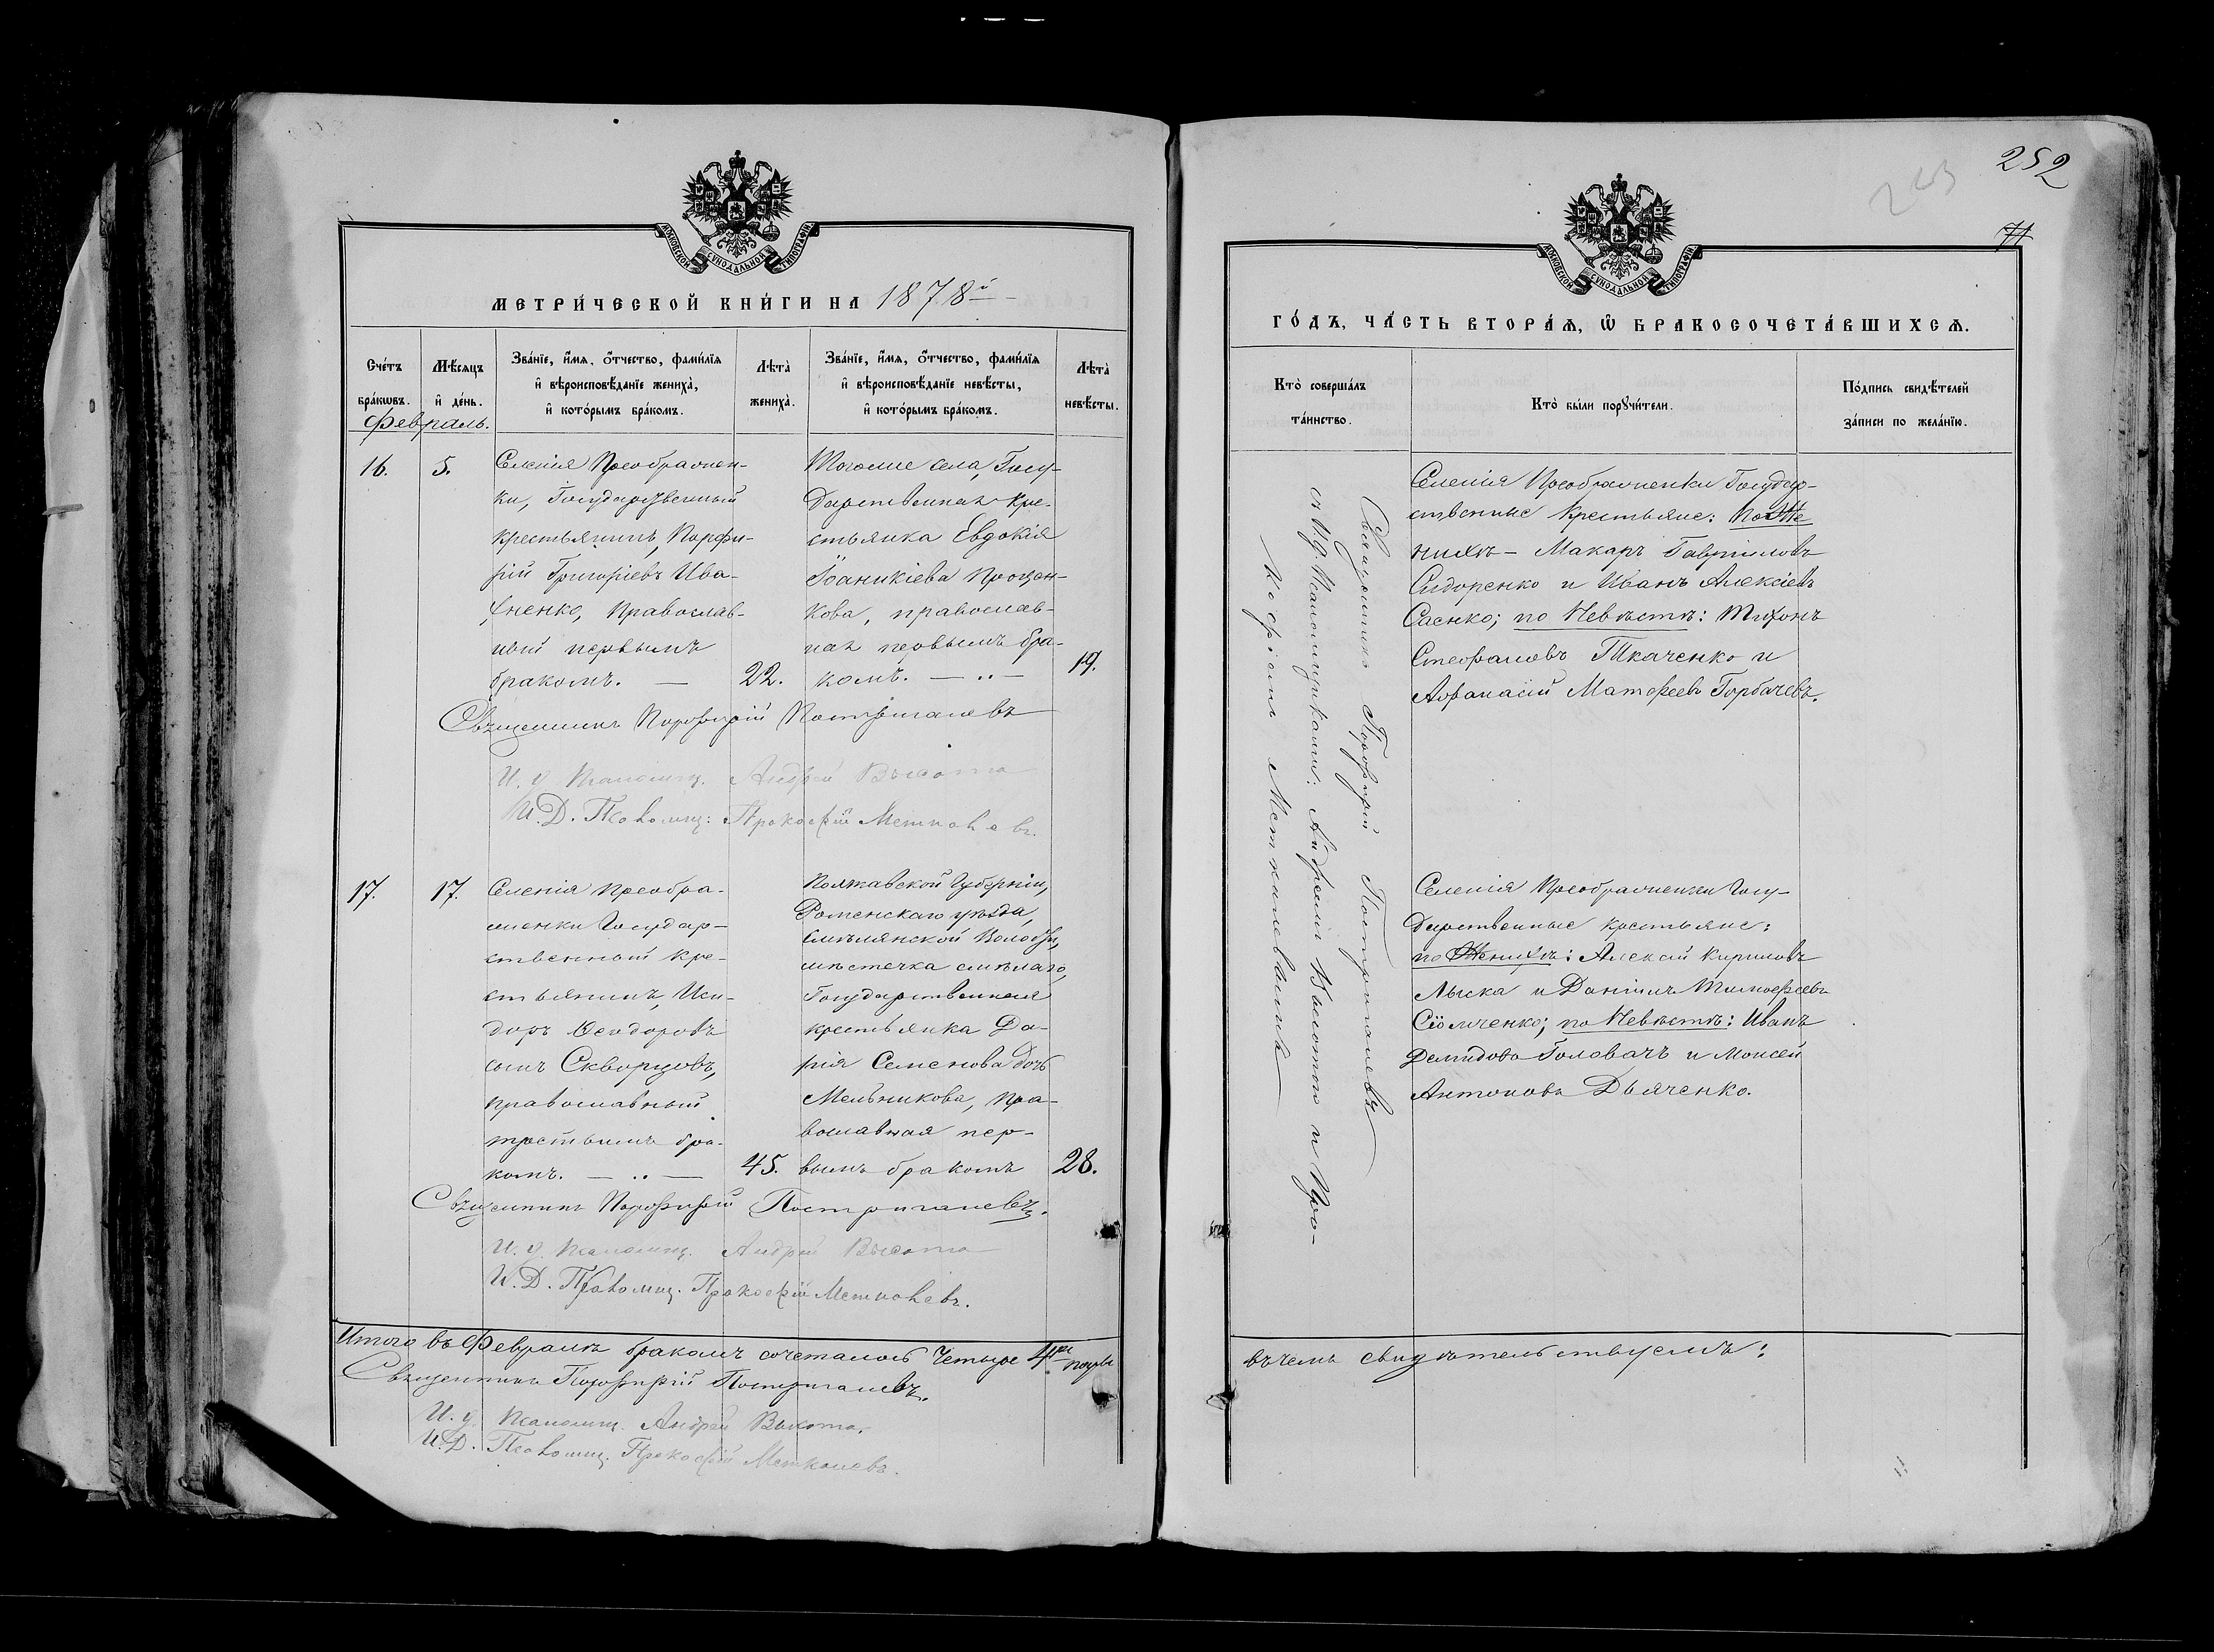 252
71
МОСКОВСКОЙ СѴНОДАЛЬНОЙ ТИПОГРАФІИ
МЕТРИ́ЧЕСКОЙ КНИ́ГИ НА 1878й
Сче́тъ бра́кѡвъ.
Мѣ́сяцъ и҆ де́нь.
Зва́нїе, и҆́мя, ѻ҆́тчество, фами́лїя
и҆ вѣроисповѣ́данїе жениха̀,
и҆ кото́рымъ бра́комъ.
Лѣ́та̀ жениха̀.
Зва́нїе, и҆́мя, ѻ҆́тчество, фами́лїя
и҆ вѣроисповѣ́данїе невѣ́сты,
и҆ кото́рымъ бра́комъ.
Лѣ́та̀ невѣ́сты.
Февраль.
16.
5.
Селенія Преображен-
ки, Государственный
крестьянинъ, Порфи-
рій Григоріевъ Ива-
хненко, Православ-
ный первымъ
бракомъ. —
22.
Тогоже села, Госу-
дарственная кре-
стьянка Евдокія
Іоаникіева Процен-
кова, православ-
ная первымъ бра-
комъ. — .. —
19.
Священникъ Порфирій Постригалевъ
И. д. Псаломщ. Андрей Высота
И. Д. Псаломщ: Прокофій
17.
17.
Селенія Преобра-
женки Государ-
ственный кре-
стьянинъ, Иси-
доръ Ѳеодоровъ
сынъ Скворцовъ,
православный
третьимъ бра-
комъ. — .. —
45.
Полтавской Губерніи,
Роменскаго уѣзда,
Смѣлянской Волости,
мѣстечка смѣлаго,
Государственная
крестьянка Да-
рія Семенова дочь
Мельникова, пра-
вославная пер-
вымъ бракомъ
28.
Священникъ Порфирій Постригалевъ.
И. д. Псаломщ. Андрей Высота
И. Д. Псаломщ. Прокофій
Итого въ Февралѣ бракомъ сочеталось Четыре 4ре пары
Священникъ Порфирій Постригалевъ.
И. д. Псаломщ. Андрей Высота.
И. Д. Псаломщ. Прокофій
МОСКОВСКОЙ СѴНОДАЛЬНОЙ ТИПОГРАФІИ
ГО́ДЪ, ЧА́СТЬ ВТОРА́Ѧ, Ѡ҆ БРАКОСОЧЕТА́ВШИХСѦ.
Кто̀ соверша́лъ
та́инство.
Кто̀ бы́ли порꙋчи́тели.
По́дпись свидѣ́телей
за́писи по жела́нїю.
Священникъ Порфирій Постригалевъ
съ И. д. Псаломщиками: Андреемъ Высотою и Про-
кофіемъ
Селенія Преображенки Государ-
ственные Крестьяне: по Же
нихѣ — Макаръ Гавриловъ
Сидоренко и Иванъ Алексіевъ
Саенко; по Невѣстѣ: Тихонъ
Стефановъ Ткаченко и
Аѳанасій Матѳеевъ Горбачевъ.
Селенія Преображенки Госу-
дарственные крестьяне:
по Женихѣ: Алексій Кириловъ
Лыска и Даніилъ Тимоѳеевъ
Сіомченко; по Невѣстѣ: Иванъ
Демидовъ Головачъ и Моисей
Антоновъ Дьяченко.
въ чемъ свидѣтельствуемъ: